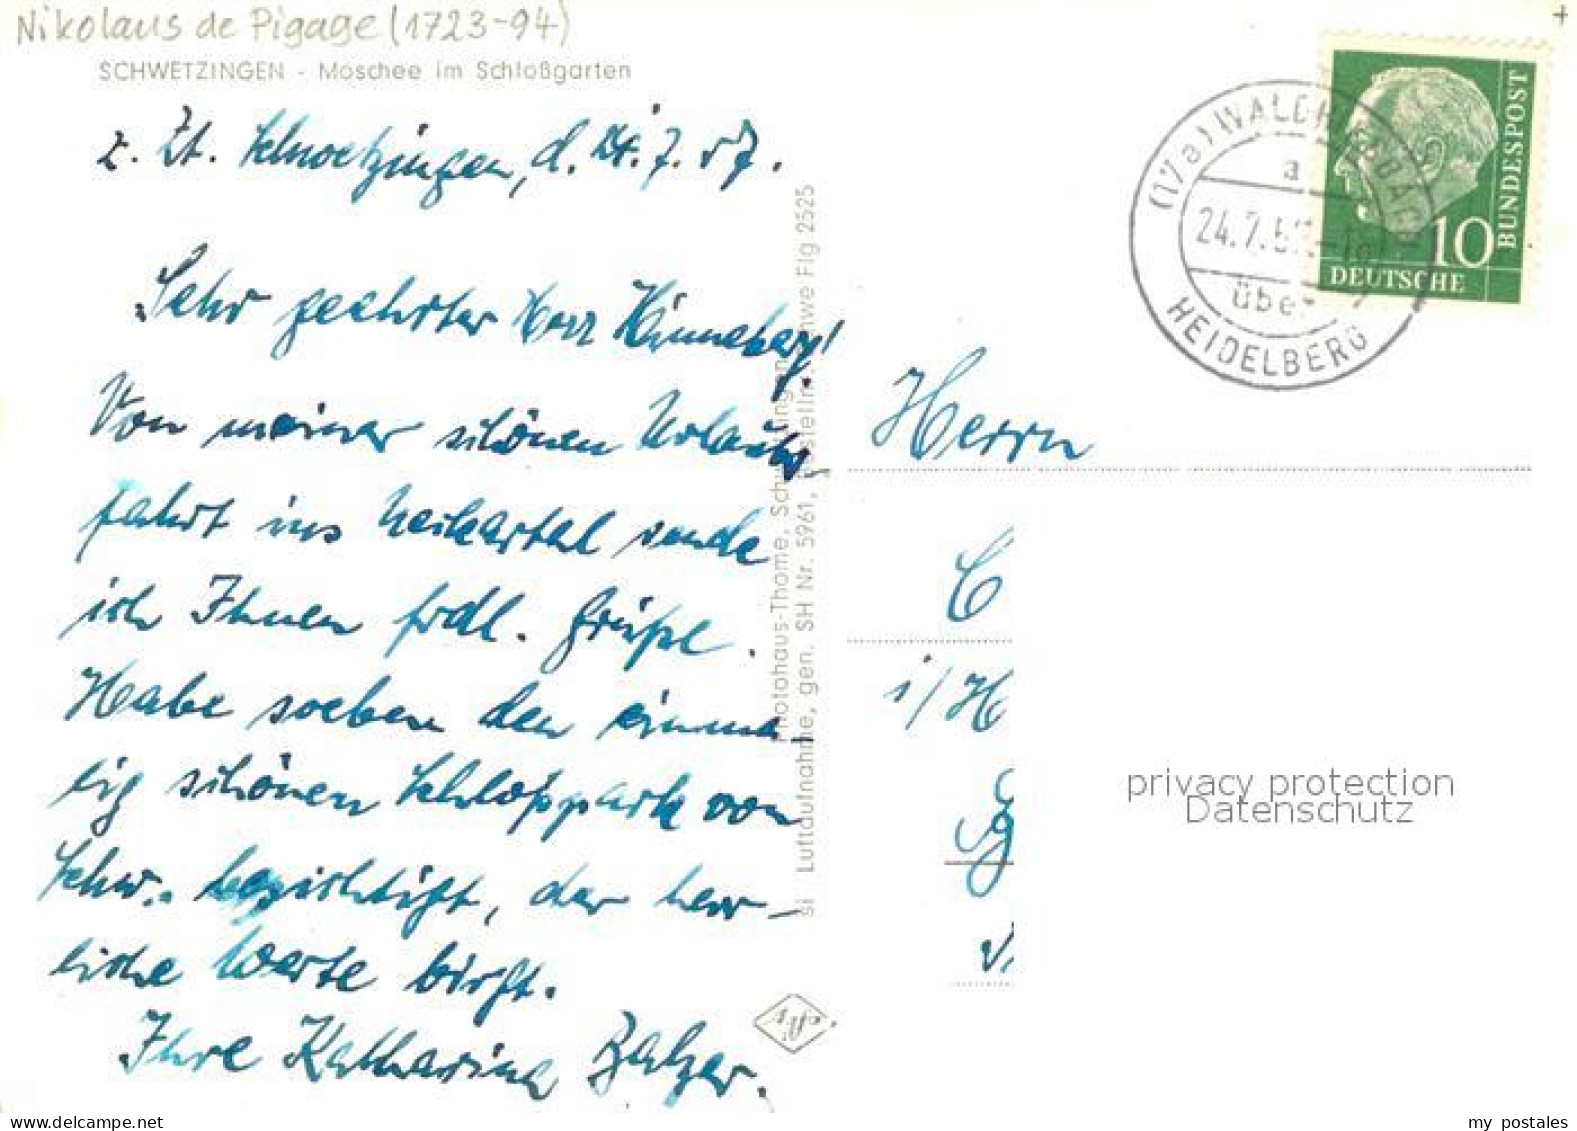 Nikolaus de Pigage (1723-94)
SCHWETZINGEN - Moschee im Schloßgarten
z. Zt. Schwetzingen, d. 24.7.57.
Sehr geehrter Herr Hinneberg!
Von meiner schönen Urlaubs-
fahrt ins Neckartal sende
ich Ihnen frdl. Grüße.
Habe soeben den einma-
lig schönen Schloßpark von
Schw. besichtigt, der herr-
liche Werte birgt.
Ihre Katharina Balzer.
Photohaus-Thome, Schwetzingen
si Luftaufnahme, gen. SH Nr. 5961,
Flg 2525
(17a) WALDH
a
24.7.5
über
HEIDELBERG
10
BUNDESPOST
DEUTSCHE
Herrn
C
i/H
privacy protection
Datenschutz
my postales